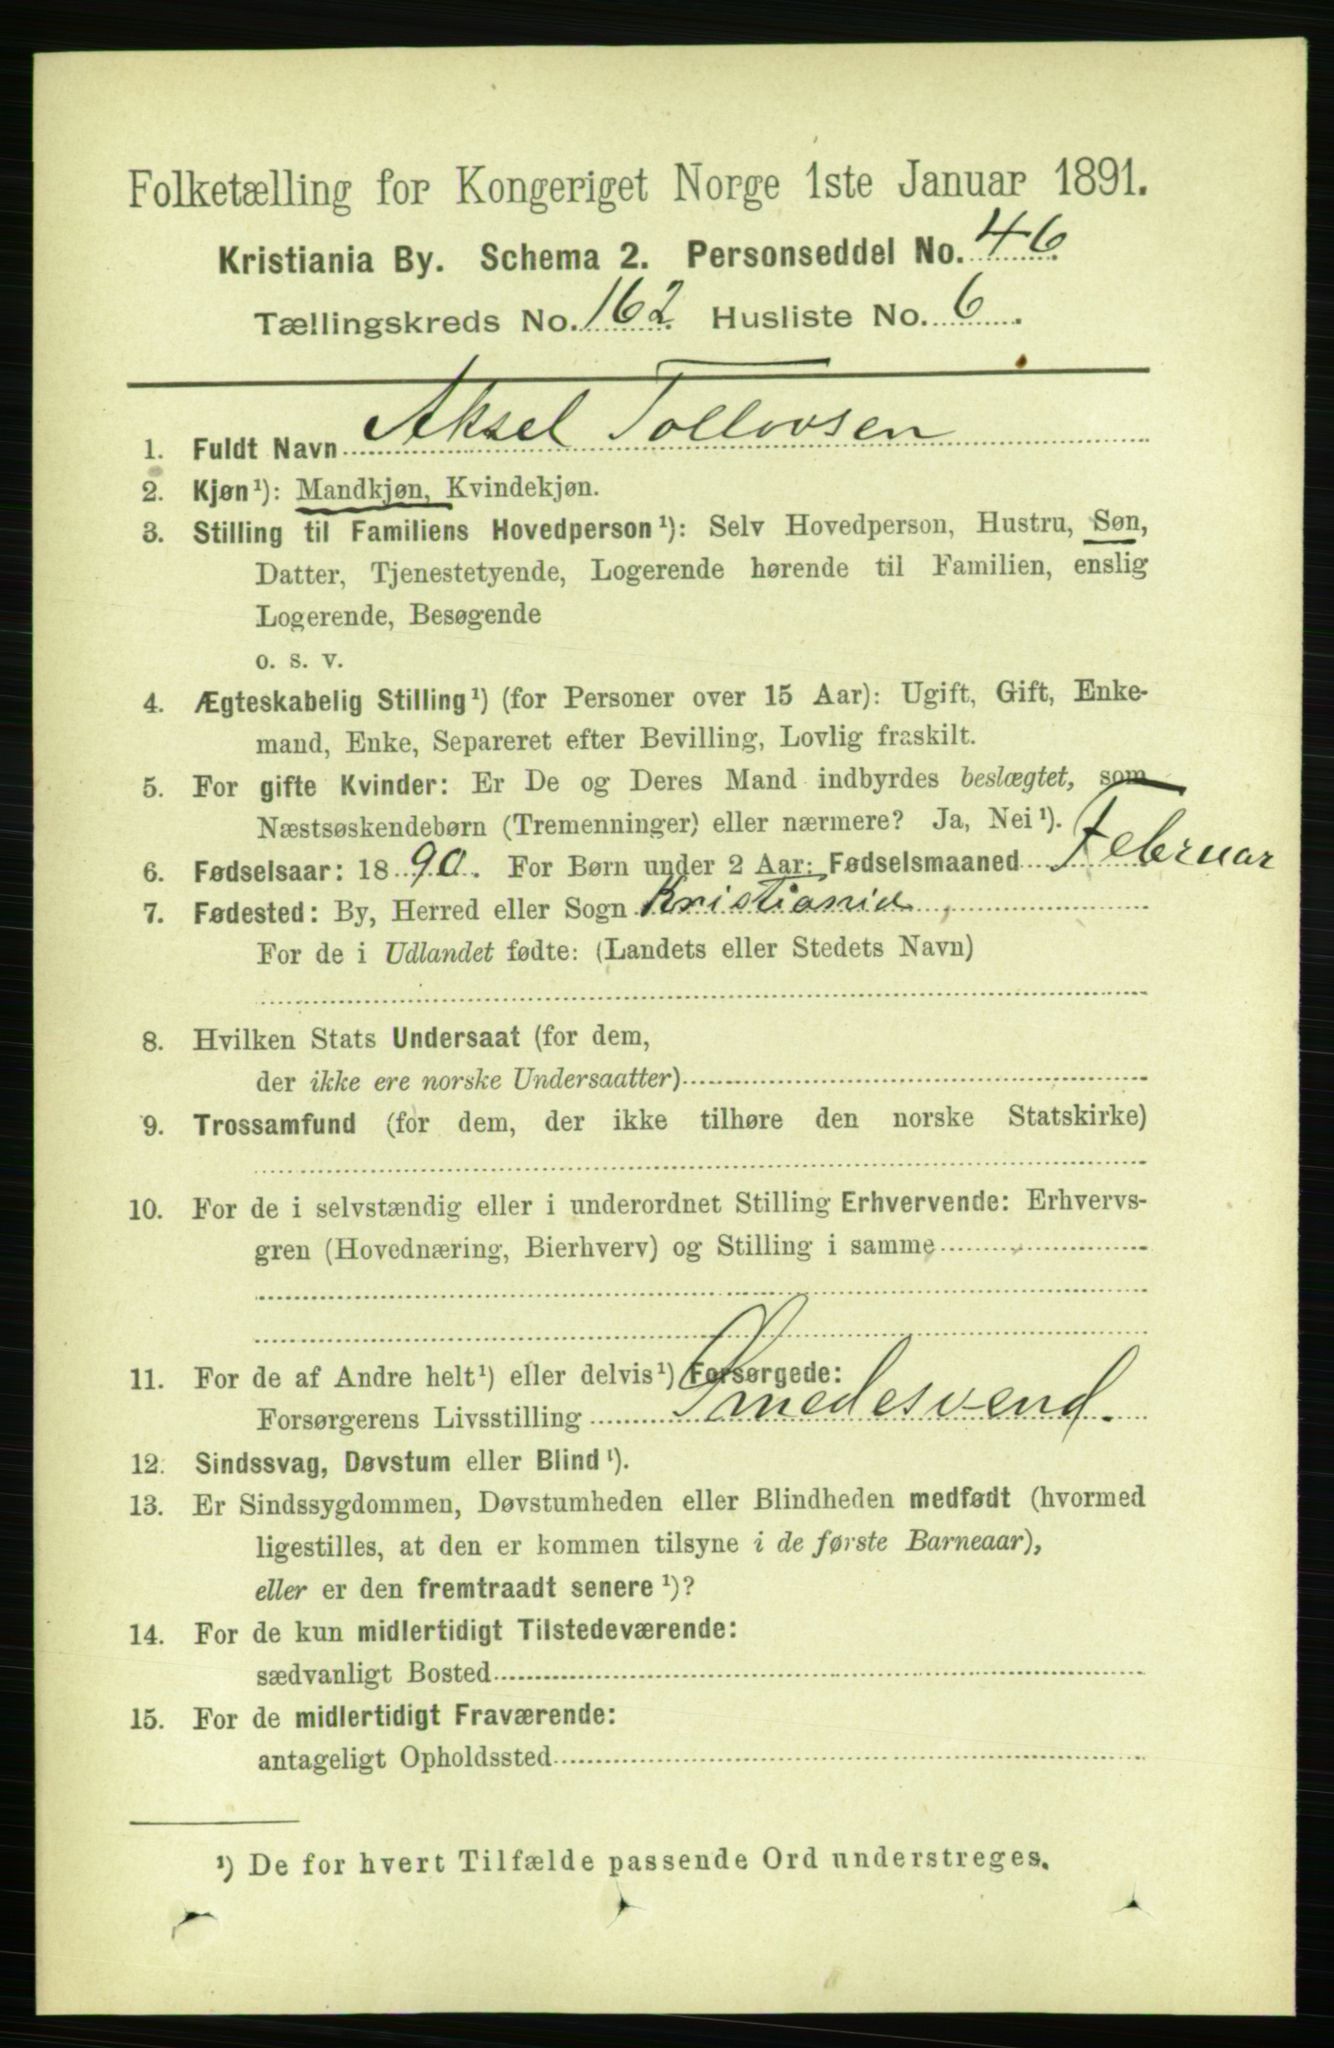 Folketælling for Kongeriget Norge 1ste Januar 1891.
Kristiania By. Schema 2. Personseddel No. 46
Tællingskreds No. 162. Husliste No. 6.
1. Fuldt Navn Aksel Tollovsen
2. Kjøn¹): Mandkjøn, Kvindekjøn.
3. Stilling til Familiens Hovedperson¹): Selv Hovedperson, Hustru, Søn,
Datter, Tjenestetyende, Logerende hørende til Familien, enslig
Logerende, Besøgende
o. s. v.
4. Ægteskabelig Stilling¹) (for Personer over 15 Aar): Ugift, Gift, Enke-
mand, Enke, Separeret efter Bevilling, Lovlig fraskilt.
5. For gifte Kvinder: Er De og Deres Mand indbyrdes beslægtet, som
Næstsøskendebørn (Tremenninger) eller nærmere? Ja, Nei¹).
6. Fødselsaar: 1890. For Børn under 2 Aar: Fødselsmaaned Februar
7. Fødested: By, Herred eller Sogn Kristiania
For de i Udlandet fødte: (Landets eller Stedets Navn)
8. Hvilken Stats Undersaat (for dem,
der ikke ere norske Undersaatter)
9. Trossamfund (for dem, der ikke tilhøre den norske Statskirke)
10. For de i selvstændig eller i underordnet Stilling Erhvervende: Erhvervs-
gren (Hovednæring, Bierhverv) og Stilling i samme
11. For de af Andre helt¹) eller delvis¹) Forsørgede:
Forsørgerens Livsstilling Smedesvend.
12. Sindssvag, Døvstum eller Blind¹).
13. Er Sindssygdommen, Døvstumheden eller Blindheden medfødt (hvormed
ligestilles, at den er kommen tilsyne i de første Barneaar),
eller er den fremtraadt senere¹)?
14. For de kun midlertidigt Tilstedeværende:
sædvanligt Bosted
15. For de midlertidigt Fraværende:
antageligt Opholdssted
¹) De for hvert Tilfælde passende Ord understreges.